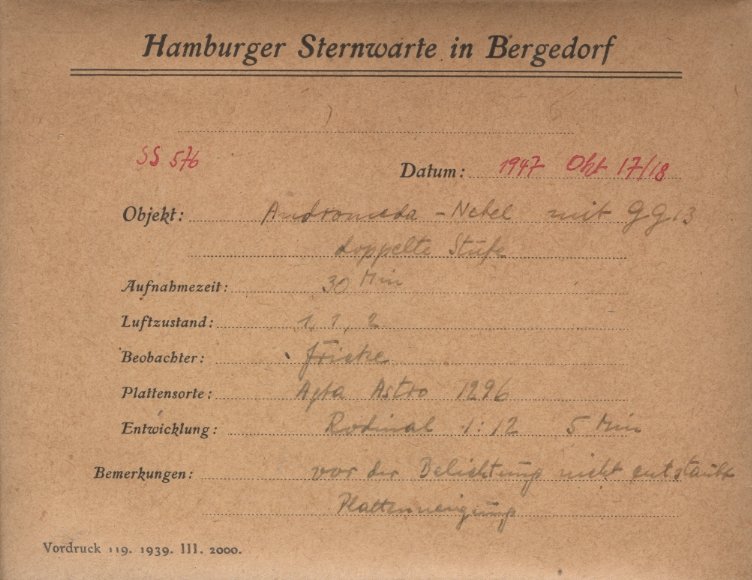 Hamburger Sternwarte in Bergedorf
SS 576
Datum: 1947 Okt 17/18
Objekt: Andromeda-Nebel mit GG 13
doppelte Stufe
Aufnahmezeit: 30 Min
Luftzustand: 1, 1, 2
Beobachter: Fricke
Plattensorte: Agfa Astro 1296
Entwicklung: Rodinal 1:12 5 Min
Bemerkungen: vor der Belichtung nicht entstaubt
Plattenneigung
Vordruck 119. 1939. III. 2000.